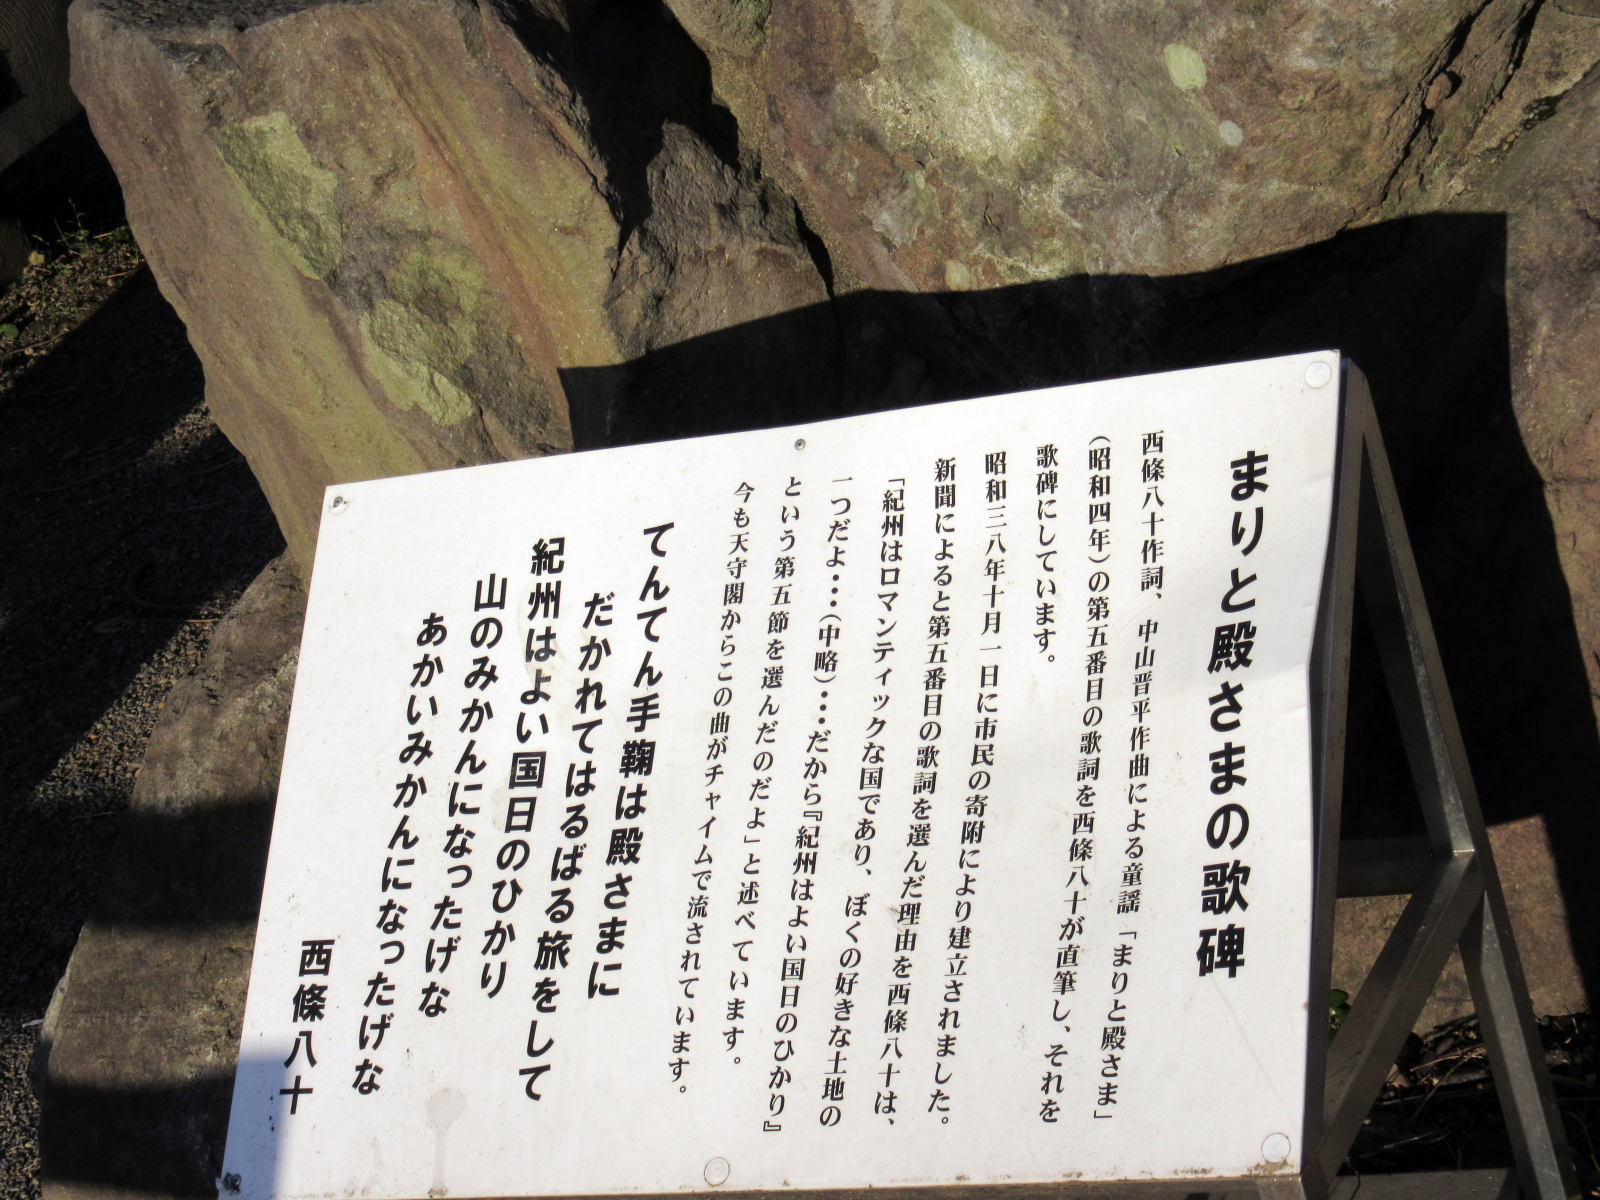 まりと殿さまの歌碑
西條八十作詞、中山晋平作曲による童謡「まりと殿さま」
（昭和四年）の第五番目の歌詞を西條八十が直筆し、それを
歌碑にしています。
昭和三八年十月一日に市民の寄附により建立されました。
新聞によると第五番目の歌詞を選んだ理由を西條八十は、
「紀州はロマンティックな国であり、ぼくの好きな土地の
一つだよ・・・（中略）・・・だから『紀州はよい国日のひかり』
という第五節を選んだのだよ」と述べています。
今も天守閣からこの曲がチャイムで流されています。
てんてん手鞠は殿さまに
だかれてはるばる旅をして
紀州はよい国日のひかり
山のみかんになったげな
あかいみかんになったげな
西條八十